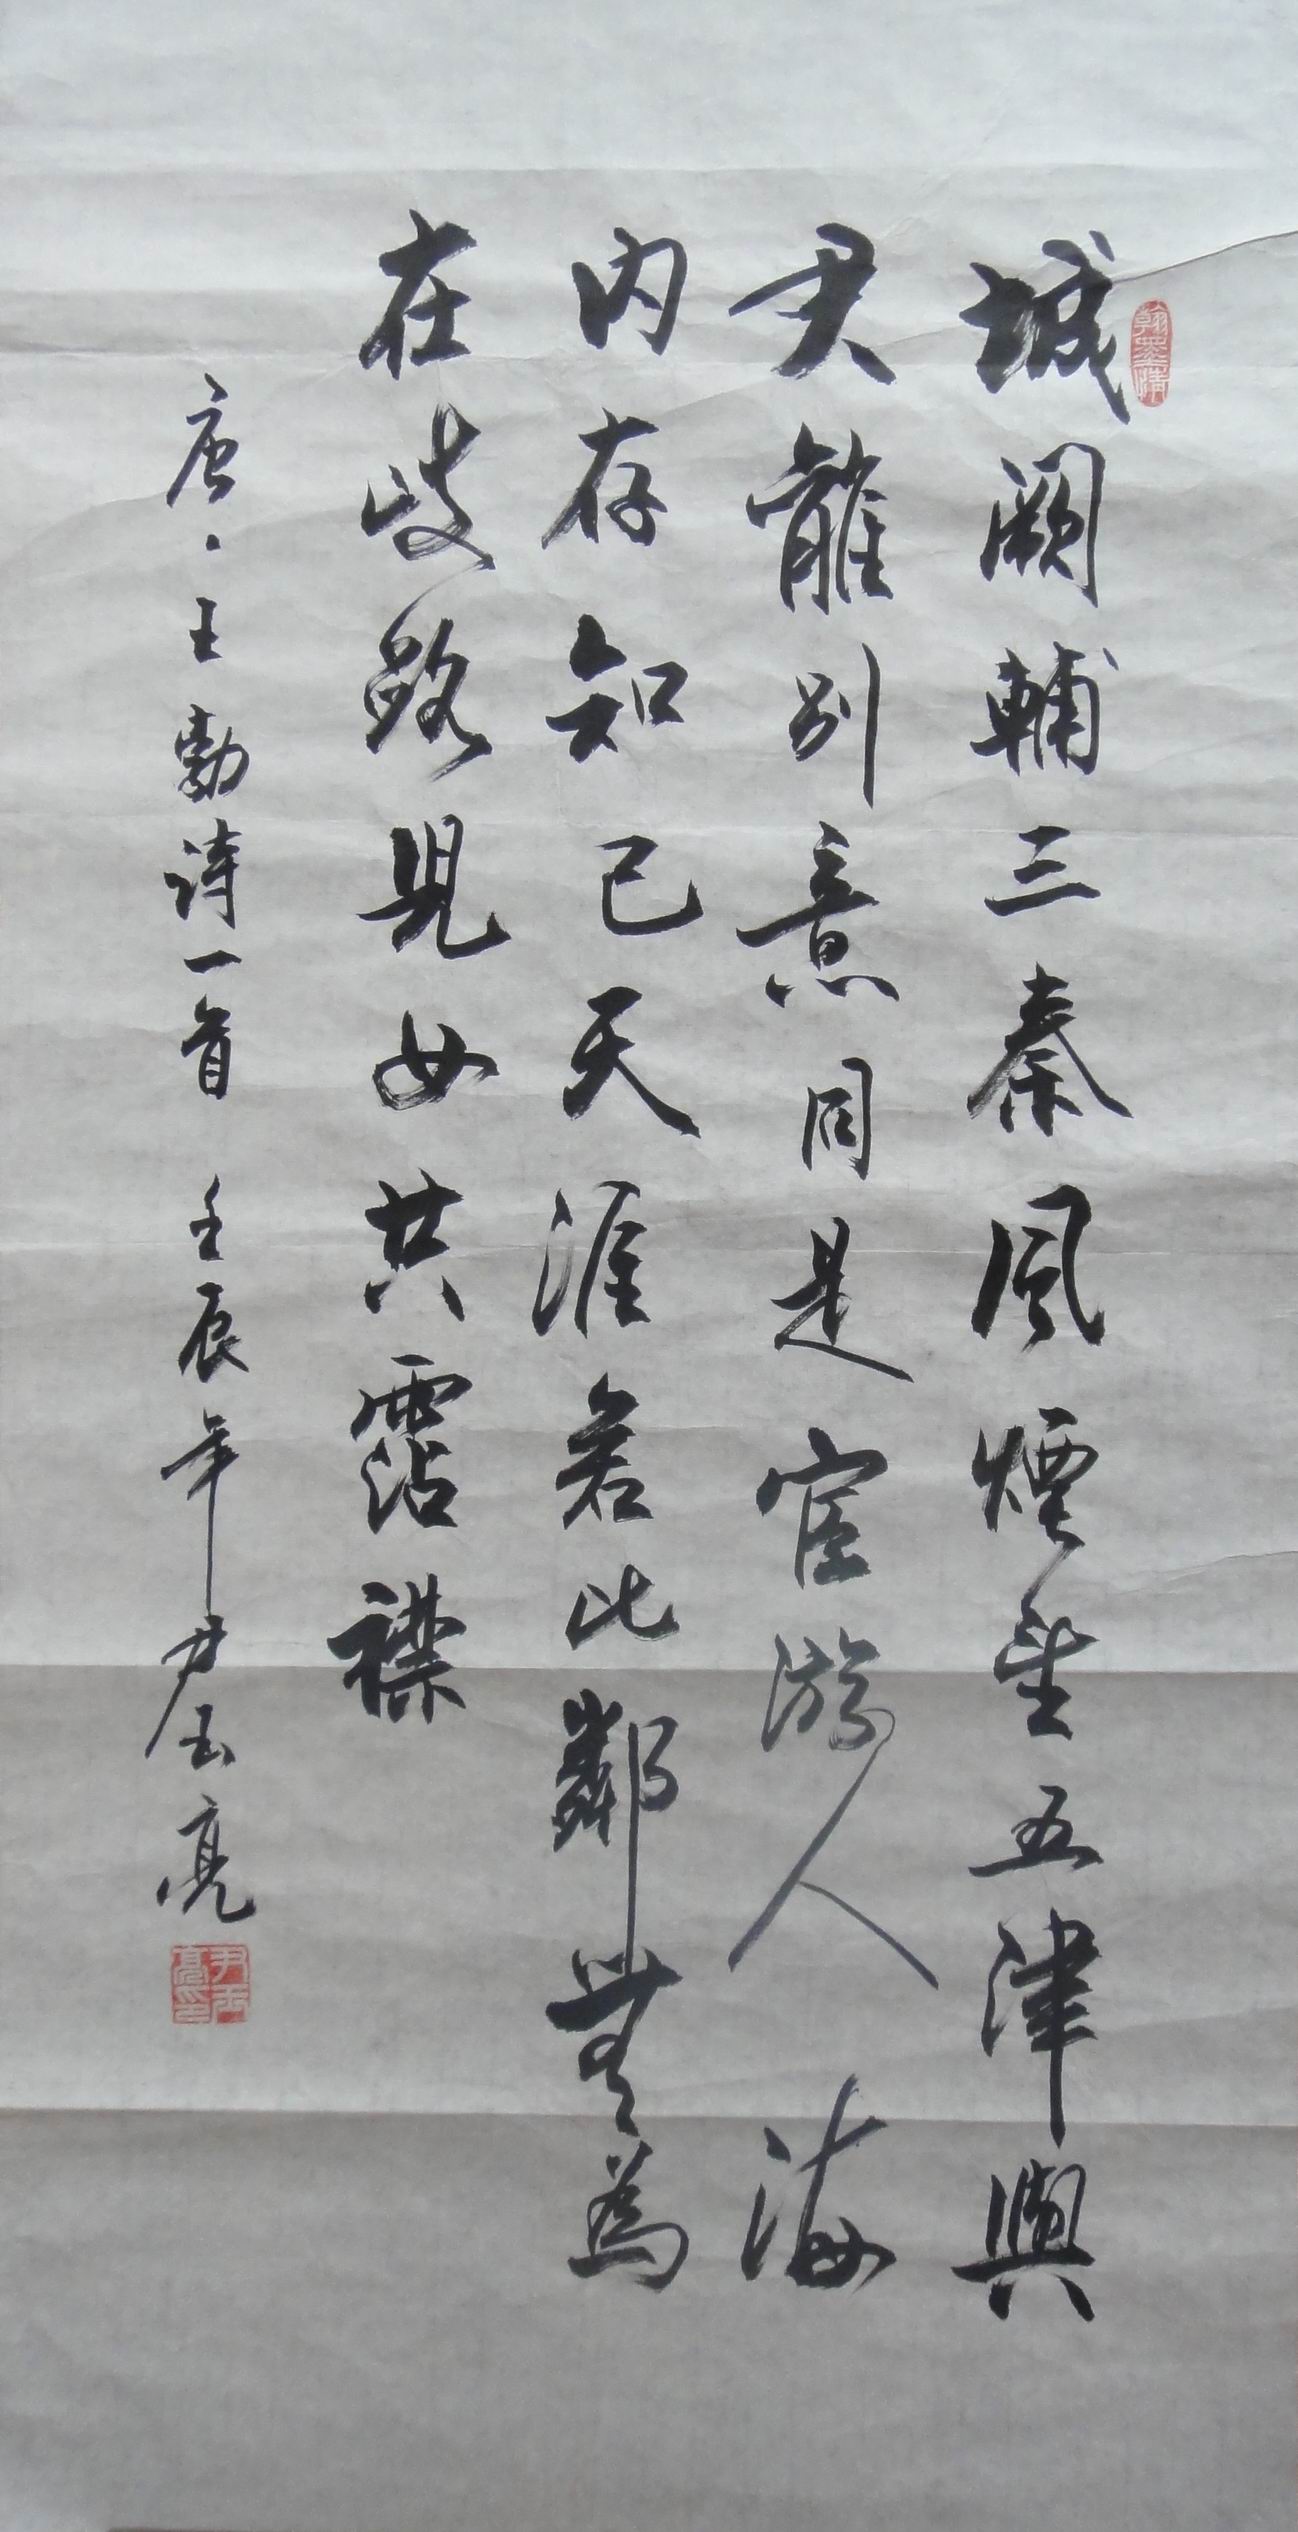 城闕輔三秦風煙望五津與
君離別意同是宦游人海
内存知己天涯若比鄰無為
在歧路兒女共霑襟
唐·王勃诗一首 壬辰年尹玉亮
翰墨情
尹玉亮印